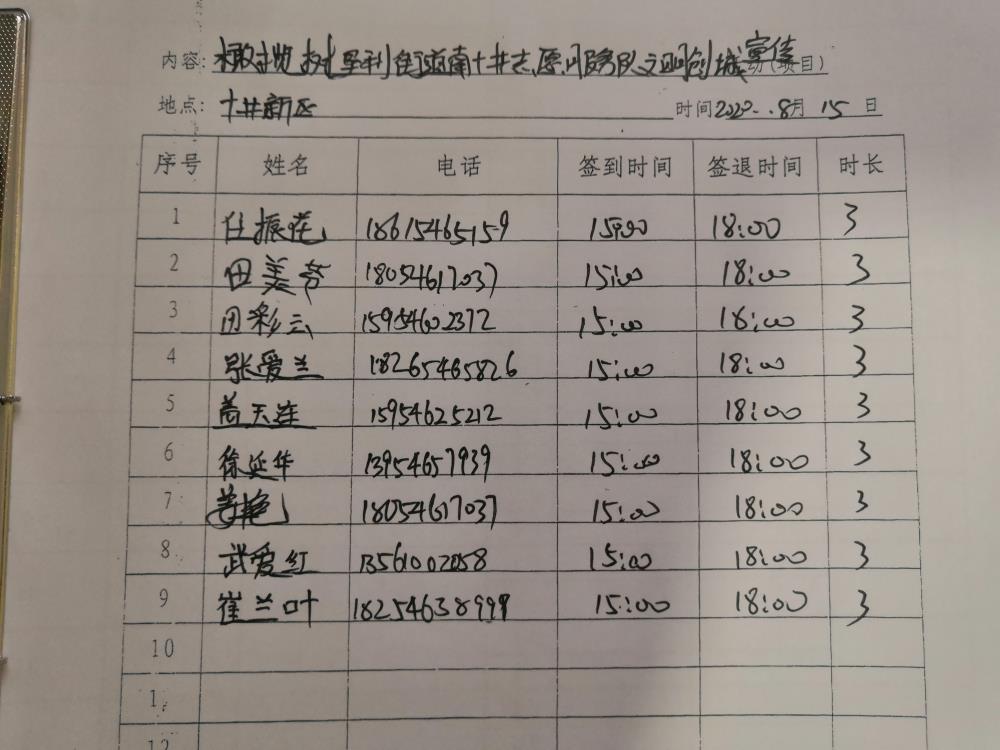 内容: 橄榄树垦利街道南十井志愿服务队文明创城宣传动(项目)
地点: 十井新区 时间2020..8月 15 日
序号 姓名 电话 签到时间 签退时间 时长
1 任振花 18615465159 15:00 18:00 3
2 田美芳 18054617037 15:00 18:00 3
3 田彩云 15954602372 15:00 18:00 3
4 张爱兰 18265465826 15:00 18:00 3
5 尚天连 15954625212 15:00 18:00 3
6 徐延华 13954657939 15:00 18:00 3
7 18054617037 15:00 18:00 3
8 武爱红 13561002058 15:00 18:00 3
9 崔兰叶 18254638999 15:00 18:00 3
10
1
12